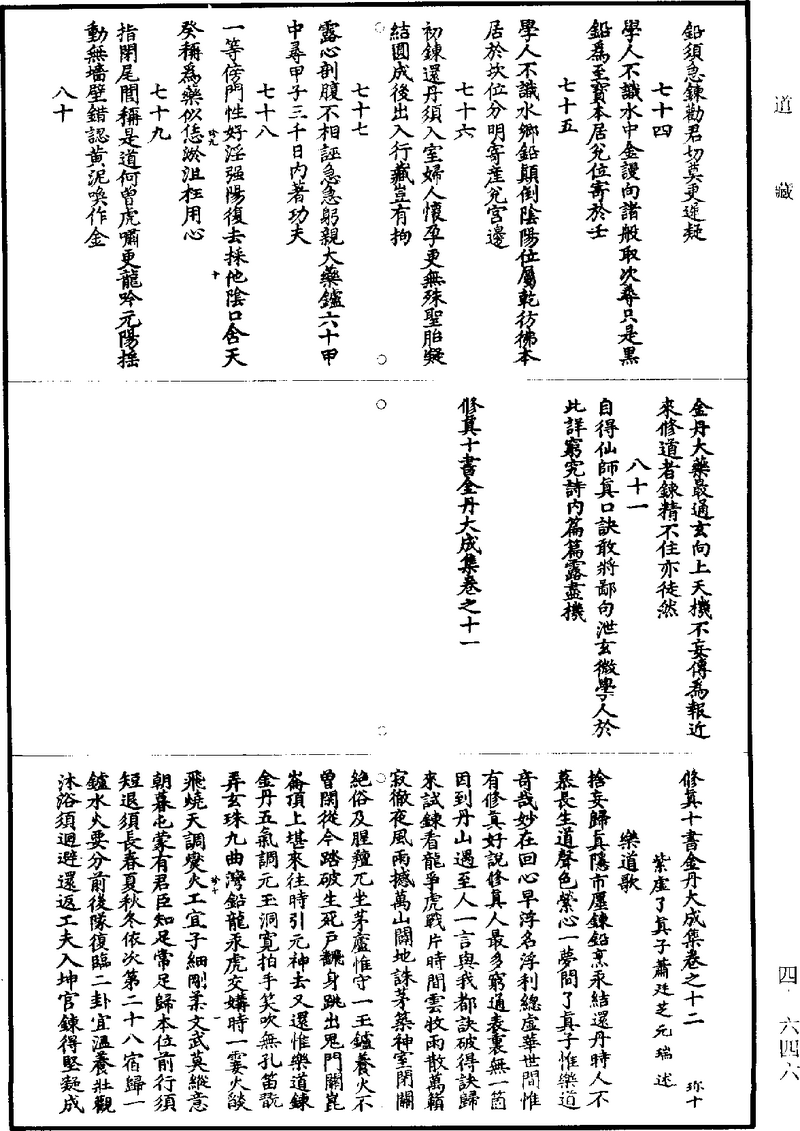 道藏
鉛須急鍊勸君切莫更遲疑
七十四
學人不識水中金謾向諸般取次尋只是黑
鉛為至寶本居兌位寄於壬
七十五
學人不識水鄉鉛顛倒陰陽位屬乾彷彿本
居於坎位分明寄產兌宮邊
七十六
初鍊還丹須入室婦人懷孕更無殊聖胎凝
結圓成後出入行藏豈有拘
七十七
露心剖腹不相誣急急躬親大藥鑪六十甲
中尋甲子三千日內著功夫
七十八
一等傍門性好淫强陽復去採他陰口含天
癸稱爲藥似恁淤沮枉用心
七十九
指閉尾閭稱是道何曾虎嘯更龍吟元陽搖
動無墻壁錯認黃泥喚作金
八十
金丹大藥最通玄向上天機不妄傳爲報近
來修道者鍊精不住亦徒然
八十一
自得仙師真口訣敢將鄙句泄玄微學人於
此詳窮究詩內篇篇露盡機
修真十書金丹大成集卷之十一
修真十書金丹大成集卷之十二 珎十
紫虛了真子蕭廷芝元瑞述
樂道歌
捨妄歸真隱市廛鍊鉛烹汞結還丹時人不
慕長生道聲色縈心一夢間了真子惟樂道
奇哉妙在回心早浮名浮利總虛華世間惟
有修真好說修真人最多窮通表裏無一箇
因到丹山遇至人一言與我都訣破得訣歸
來試鍊看龍爭虎戰片時間雲收雨散萬籟
寂徹夜風雨撼萬山闢地誅茅築神室閉關
絕俗及腥羶兀坐茅廬惟守一玉鑪養火不
曾閑從今踏破生死戶飜身跳出鬼門關崑
崙頂上堪來往時引元神去又還惟樂道鍊
金丹五氣調元玉洞寬拍手笑吹無孔笛翫
弄玄珠九曲灣鉛龍汞虎交媾時一霎火燄
飛燒天調燮火工宜子細剛柔文武莫縱意
朝暮屯蒙有君臣知足常足歸本位前行須
短退須長春夏秋冬依次第二十八宿歸一
鑪水火要分前後隊復臨二卦宜溫養壯觀
沐浴須迴避還返工夫入坤宮鍊得堅凝成
四·六四六